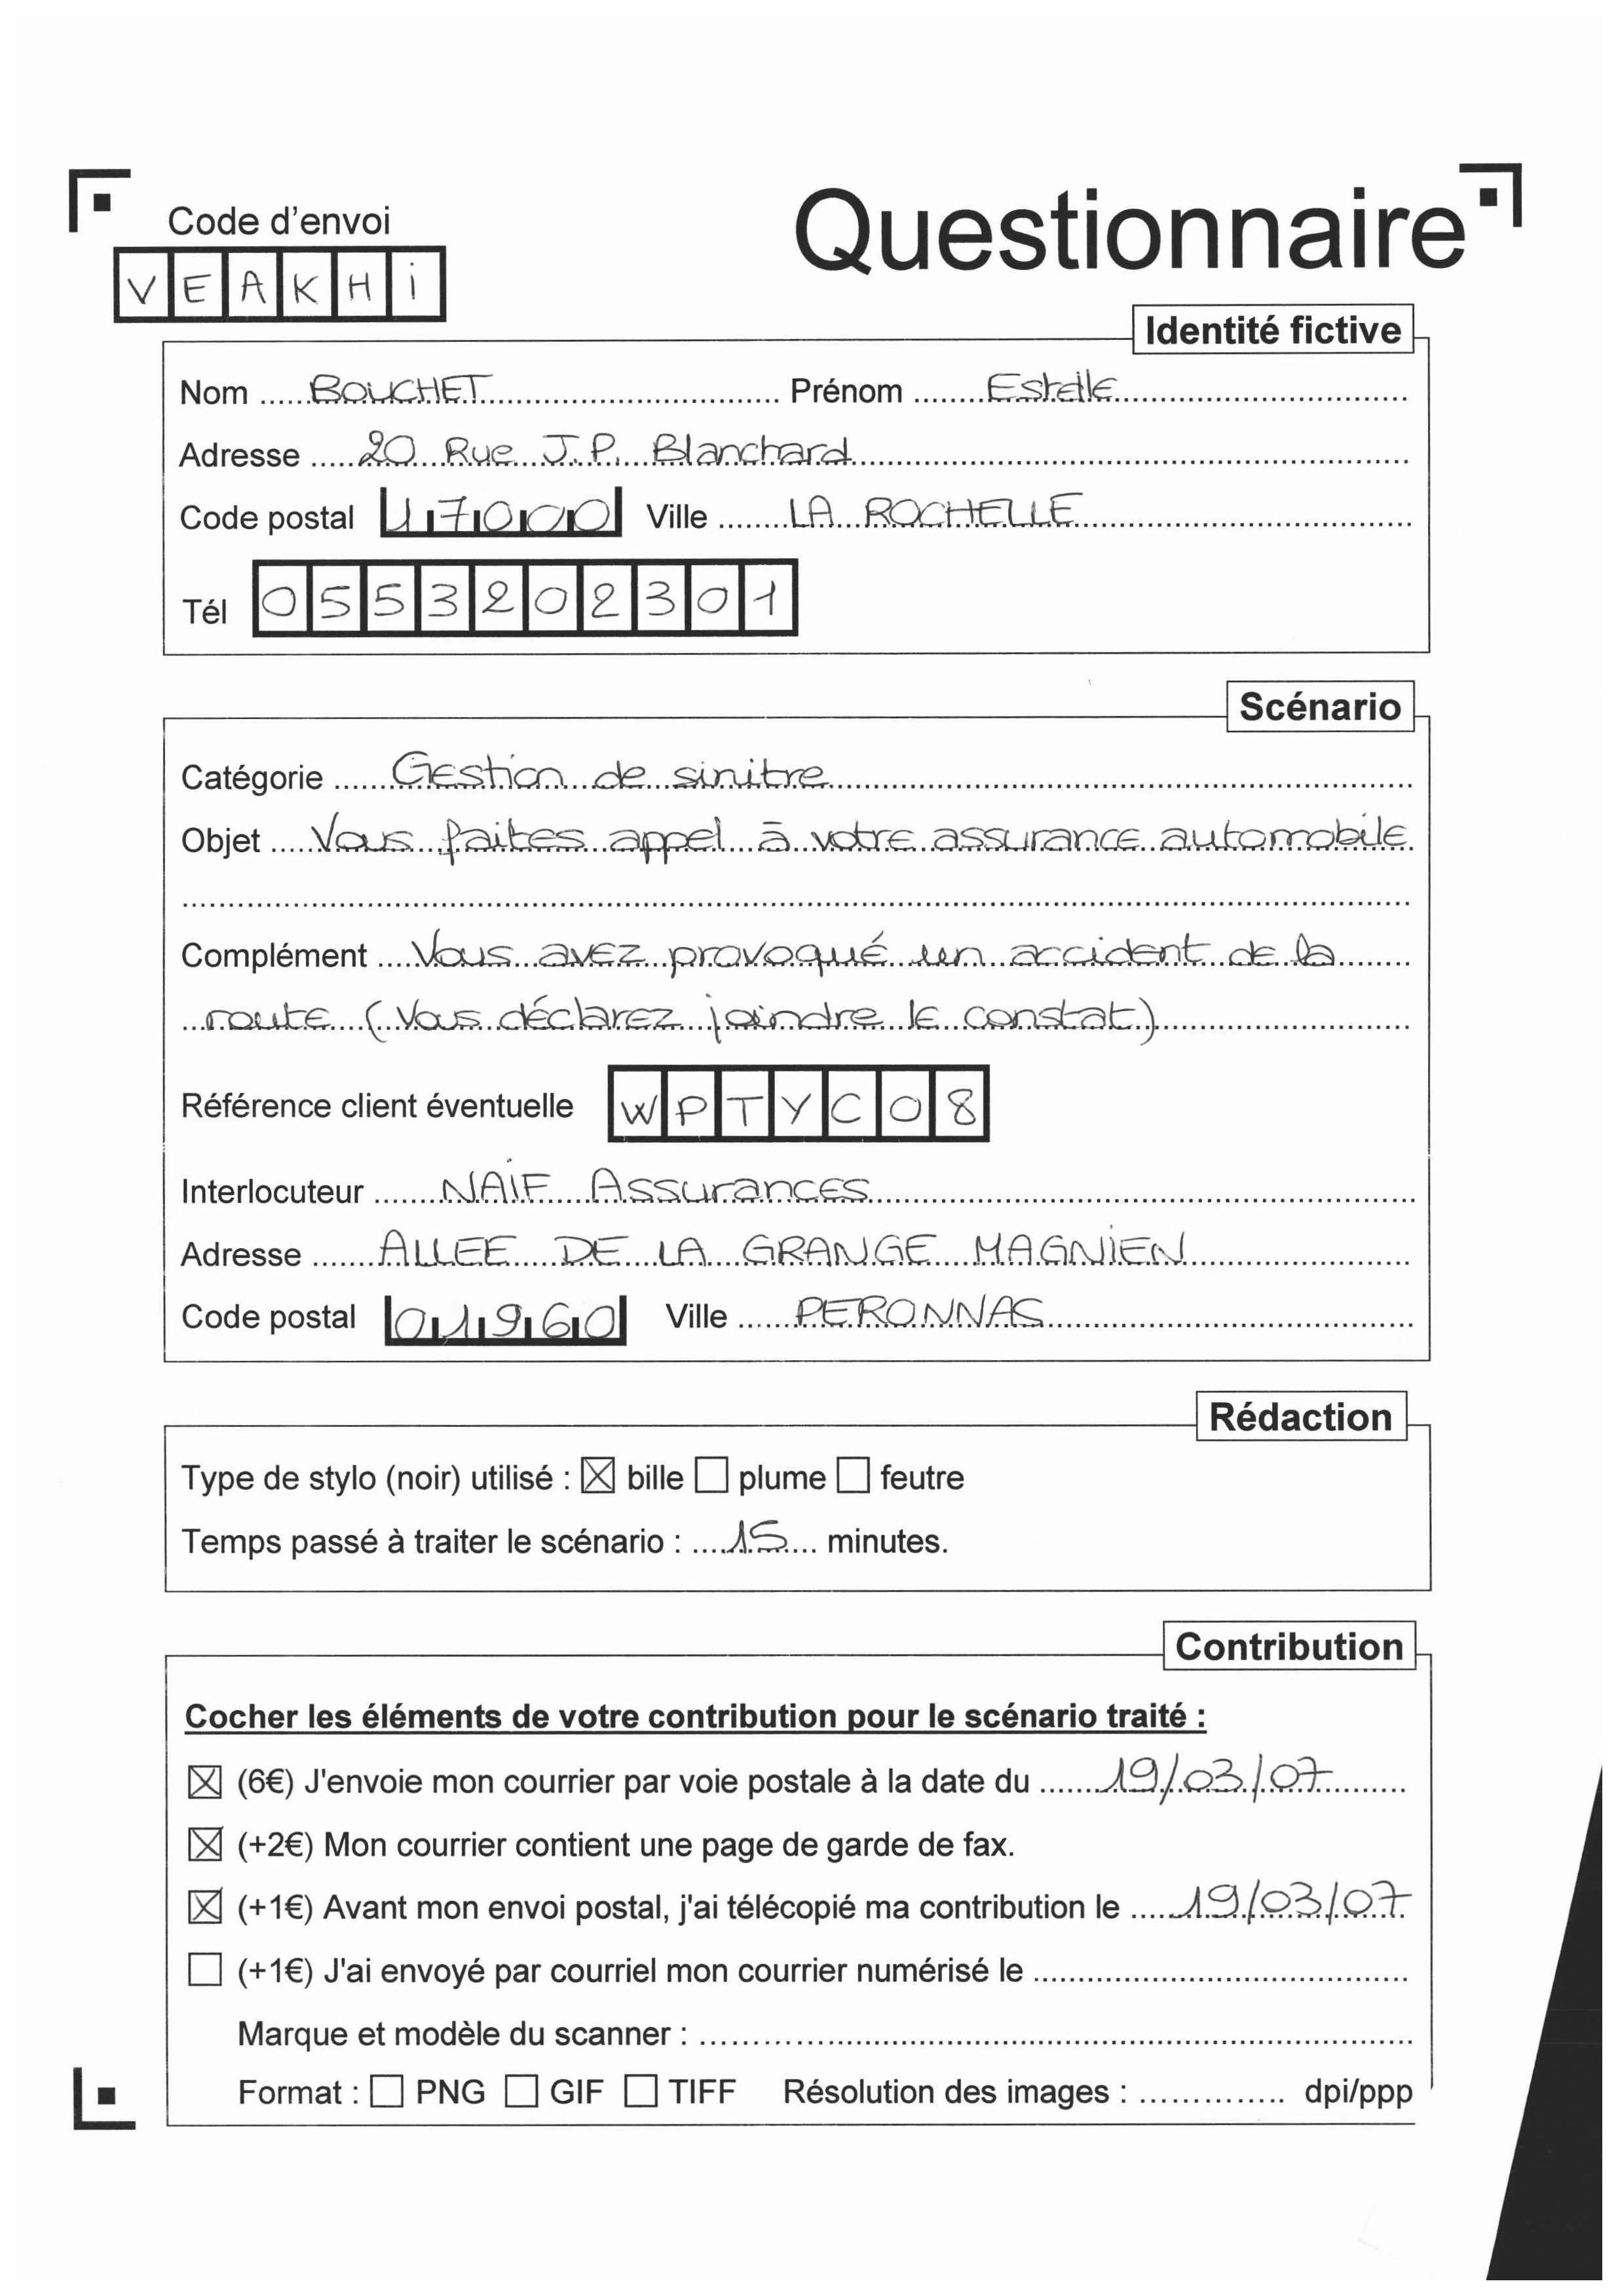 Code d'envoi
VEAKHi
Questionnaire
Identité fictive
Nom ..... BOUCHET ..... Prénom ..... Estelle .....
Adresse ..... 20 Rue J.P. Blanchard .....
Code postal 17000 Ville ..... LA ROCHELLE .....
Tél 0553202301
Scénario
Catégorie ..... Gestion de sinitre .....
Objet ..... Vous faites appel à votre assurance automobile
Complément ..... Vous avez provoqué un accident de la
route (Vous déclarez joindre le constat)
Référence client éventuelle WPTYC08
Interlocuteur ..... NAïF Assurances .....
Adresse ..... ALLEE DE LA GRANGE MAGNiEN .....
Code postal 01960 Ville ..... PERONNAS .....
Rédaction
Type de stylo (noir) utilisé : ☒ bille ☐ plume ☐ feutre
Temps passé à traiter le scénario : .... 15 .... minutes.
Contribution
Cocher les éléments de votre contribution pour le scénario traité :
☒ (6€) J'envoie mon courrier par voie postale à la date du ..... 19/03/07 .....
☒ (+2€) Mon courrier contient une page de garde de fax.
☒ (+1€) Avant mon envoi postal, j'ai télécopié ma contribution le ..... 19/03/07
☐ (+1€) J'ai envoyé par courriel mon courrier numérisé le .....
Marque et modèle du scanner : .....
Format : ☐ PNG ☐ GIF ☐ TIFF Résolution des images : .............. dpi/ppp